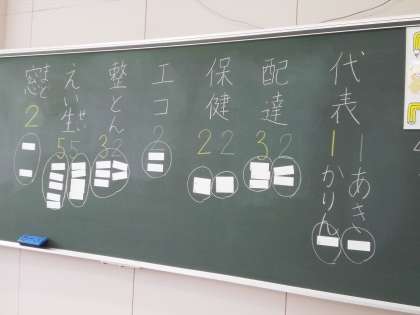 代表
1 1
あき
かりん
配達
3 2
保健
2 2
エコ
2
整とん
3 3
えい生
せい
5 5
窓
まど
2